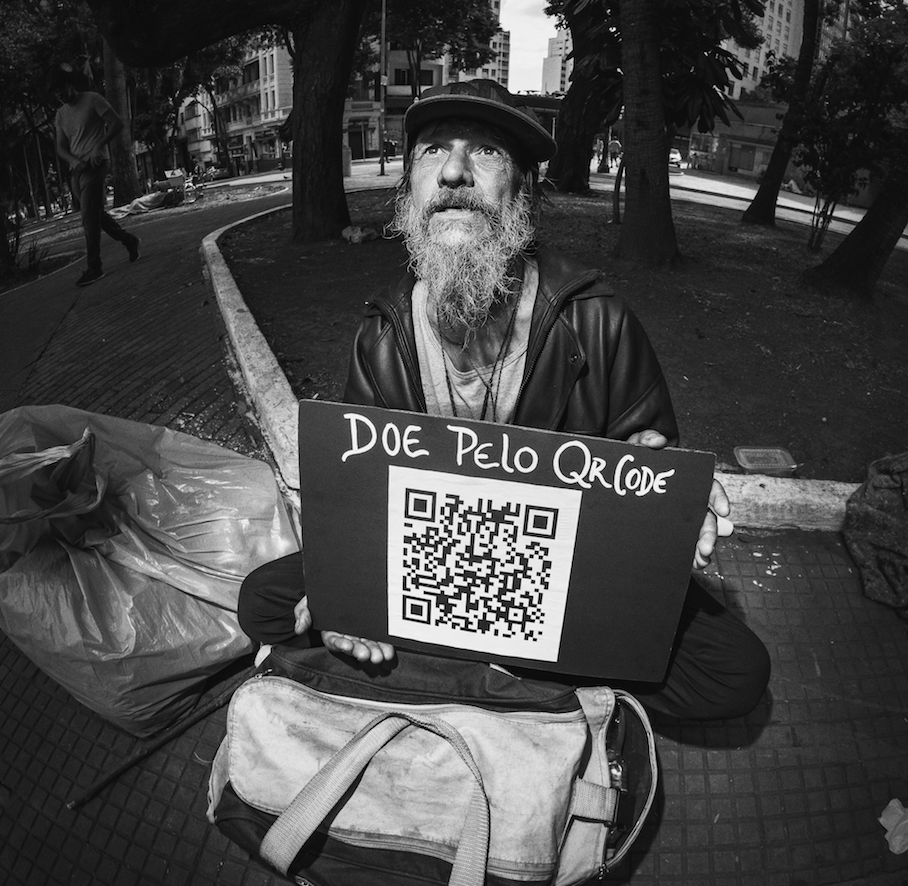 DOE PELO QR CODE